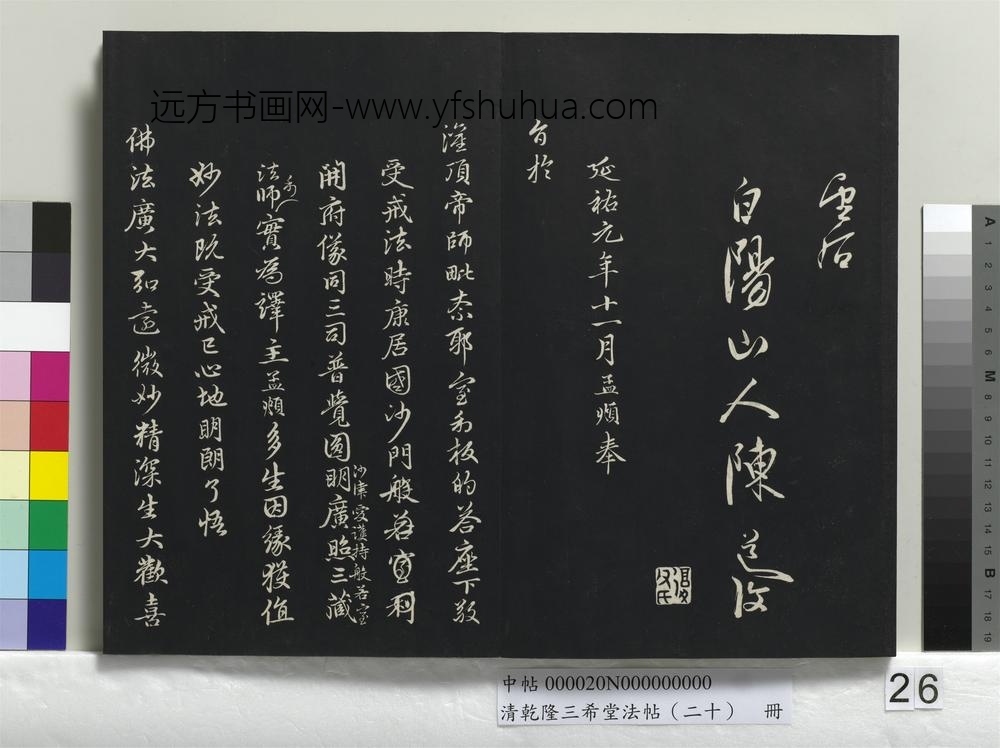 远方书画网-www.yfshuhua.com
雲石
白陽山人陳道復
復父氏
延祐元年十一月孟頫奉
旨於
灌頂帝師毗奈耶室利板的答座下敬
受戒法時康居國沙門般若室利
開府儀同三司普覺圓明廣照三藏
沙律愛護持般若室
法師實為譯主孟頫多生因緣獲值
利
妙法既受戒已心地明朗了悟
佛法廣大弘遠微妙精深生大歡喜
中帖 000020N000000000
清乾隆三希堂法帖（二十） 冊
26
A 1 2 3 4 5 6 M 8 9 10 11 12 13 14 15 B 17 18 19